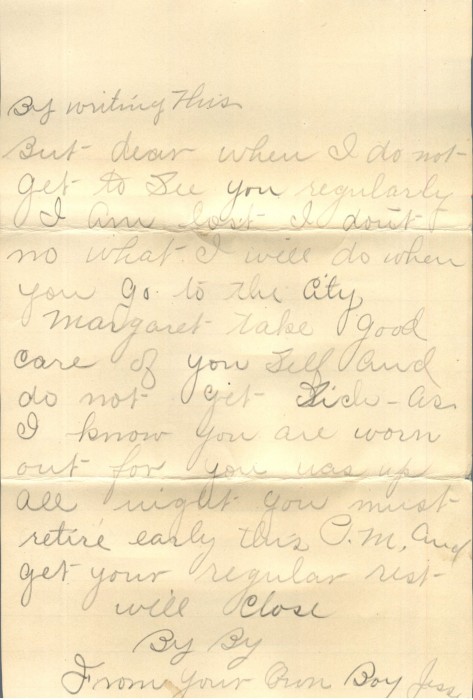 By writing This
But dear when I do not
get to See you regularly
I am lost I dont
no what I will do when
you go to the City,
Margaret take good
care of you Self and
do not get Sick - as
I know you are worn
out for you was up
all night you must
retire early this P.M. and
get your regular rest
will Close
By By
From Your Own Boy Jess